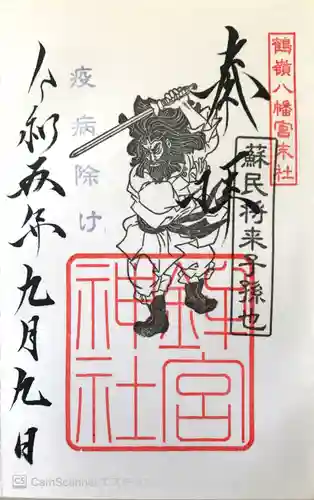 鶴嶺八幡宮末社
奉拝
蘇民将来子孫也
鉾宮
神社
疫病除け
令和五年九月九日
CS CamScanner